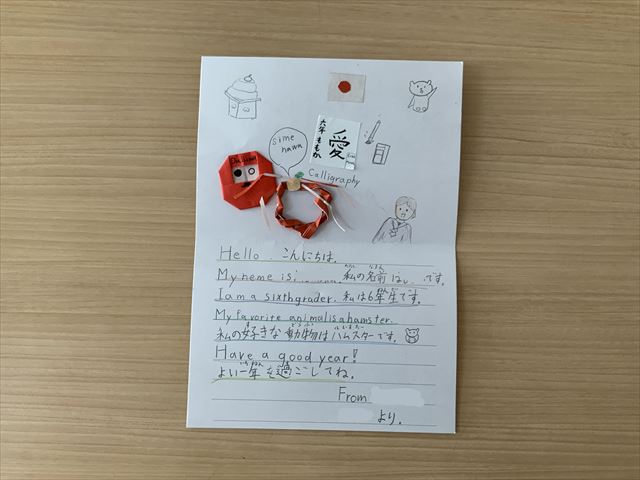 sime
nawa
Daruma
愛
六年 ももか
Calligraphy
Hello. こんにちは。
My neme is 私の名前は です。
I am a sixthgrader. 私は6年生です。
My favorite animal is a hamster.
私の好きな動物はハムスターです。
Have a good year!
よい一年を過ごしてね。
From
より。